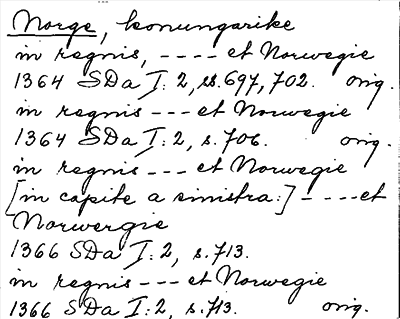 Norge, konungarike
in regnis, ---- et Norwegie
1364 SDa I: 2, ss. 697, 702. orig.
in regnis --- et Norwegie
1364 SDa I: 2, s. 706. orig.
in regnis --- et Norwegie
[in capite a sinistra:] ---- et
Norwergie
1366 SDa I: 2, s. 713.
in regnis --- et Norwegie
1366 SDa I: 2, s. 713. orig.